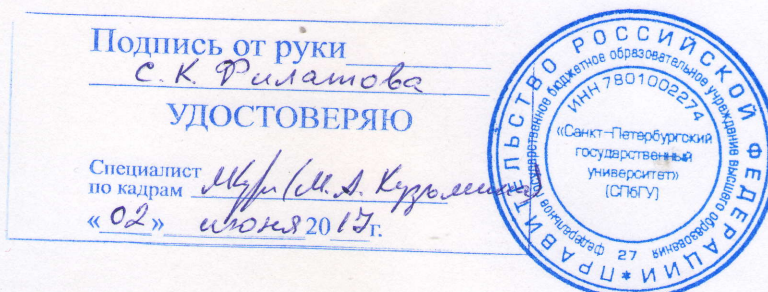 Подпись от руки
С. К. Филатова
УДОСТОВЕРЯЮ
Специалист
по кадрам (М. А. Кузьмина)
«02» июня 2017г.
ПРАВИТЕЛЬСТВО РОССИЙСКОЙ ФЕДЕРАЦИИ *
федеральное государственное бюджетное образовательное учреждение высшего образования 27
ИНН 7801002274
«Санкт-Петербургский
государственный
университет»
(СПбГУ)